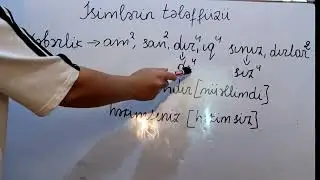 İsimlərin tələffüzü
Xəbərlik → am², san², dır⁴, ıq⁴ sınız, dırlar²
sız⁴
[müəllimdi]
həkimsiniz [həkimsiz]